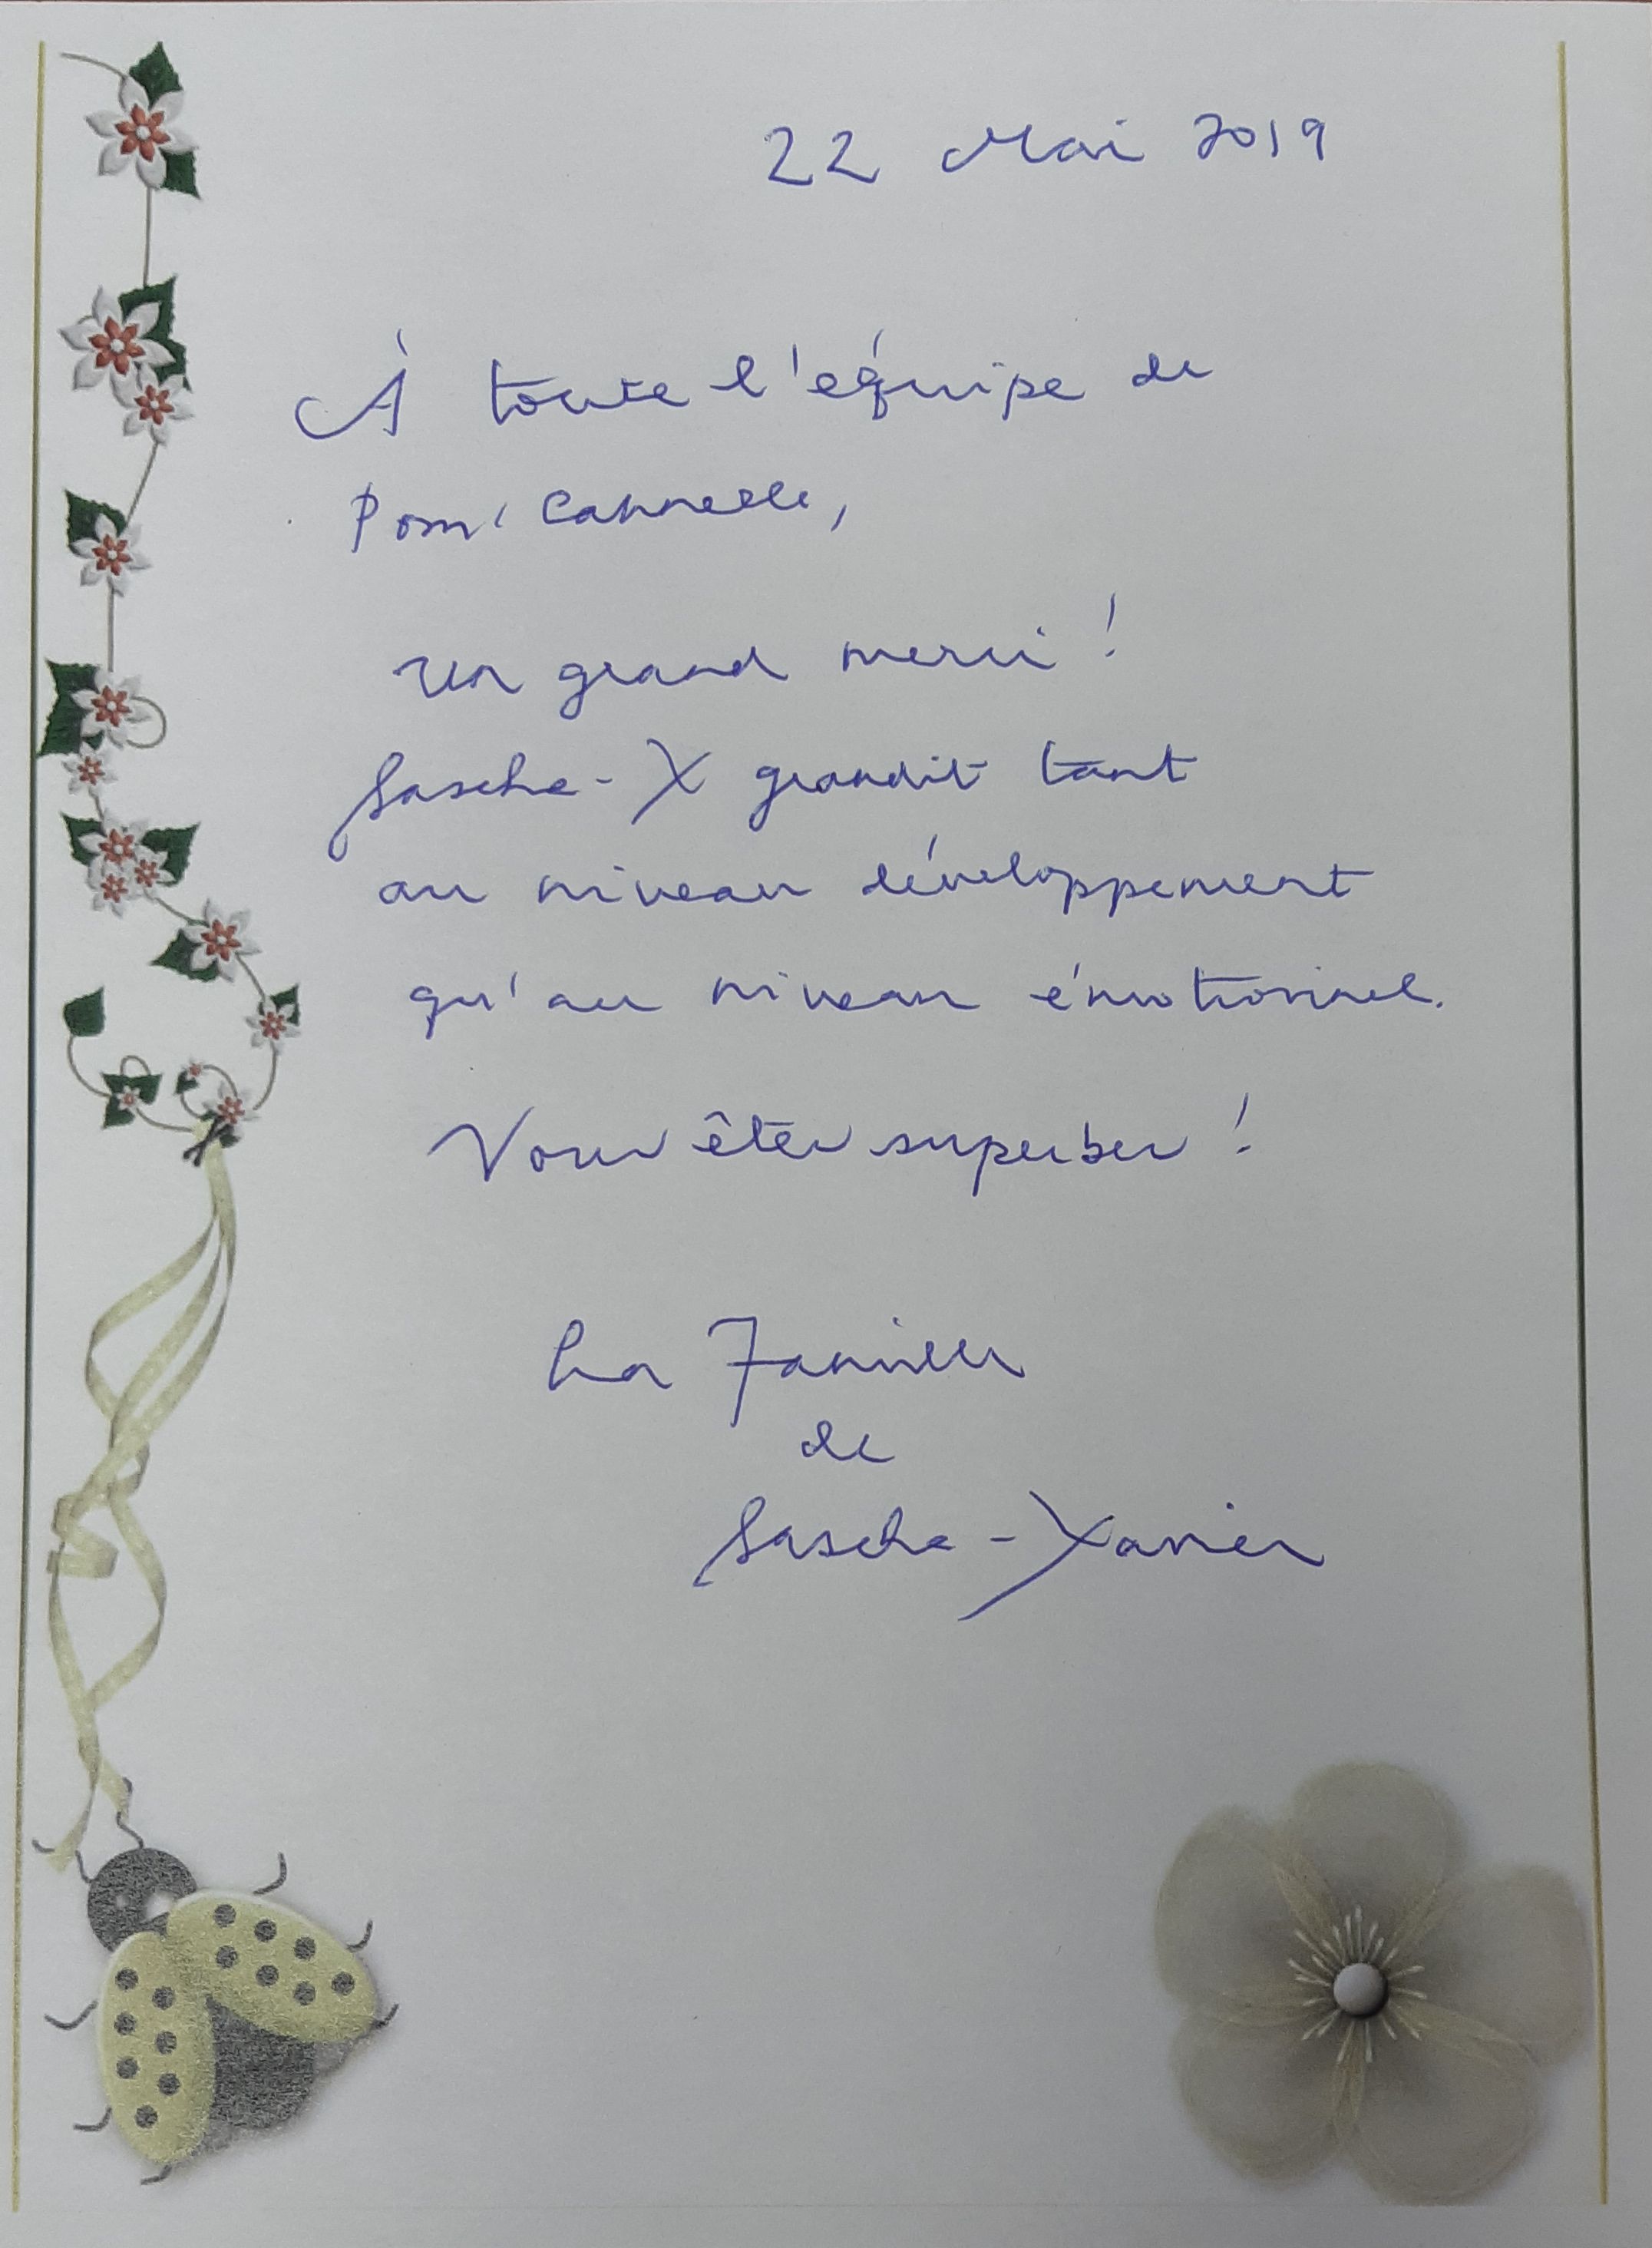 22 Mai 2019
À toute l'équipe de
Pom' Cannelle,
Un grand merci !
Sascha-X grandit tant
au niveau développement
qu'au niveau émotionnel.
Vous êtes superbes !
La Famille
de
Sascha-Xavier